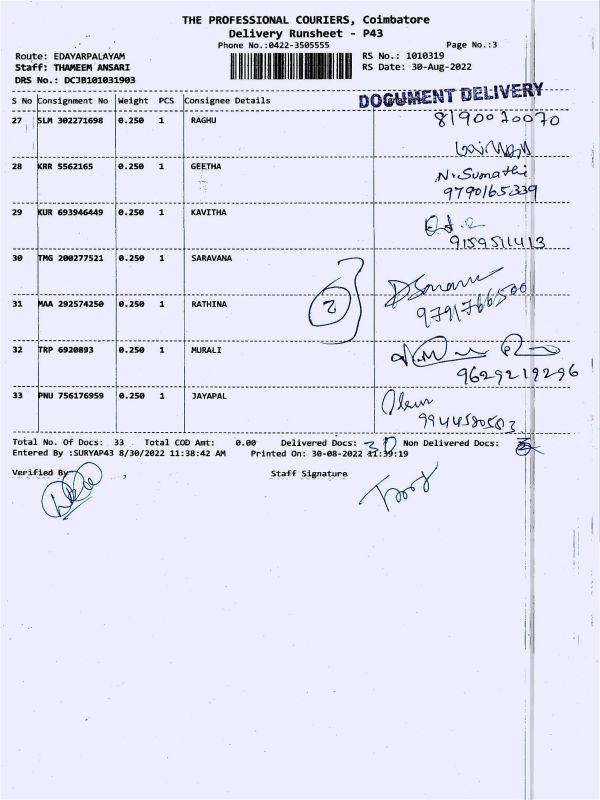 THE PROFESSIONAL COURIERS, Coimbatore
Delivery Runsheet - P43
Phone No.:0422-3505555 Page No.:3
Route: EDAYARPALAYAM RS No.: 1010319
Staff: THAMEEM ANSARI RS Date: 30-Aug-2022
DRS No.: DCJB101031903
DOCUMENT DELIVERY
S No Consignment No Weight PCS Consignee Details
27 SLM 302271698 0.250 1 RAGHU 8190070070
28 KRR 5562165 0.250 1 GEETHA N.Sumathi
9790165339
29 KUR 693946449 0.250 1 KAVITHA
9159511413
30 TMG 200277521 0.250 1 SARAVANA
2
31 MAA 292574250 0.250 1 RATHINA 9791766500
32 TRP 6920893 0.250 1 MURALI
9629219296
33 PNU 756176959 0.250 1 JAYAPAL
9944580583
Total No. Of Docs: 33 Total COD Amt: 0.00 Delivered Docs: 30 Non Delivered Docs:
Entered By :SURYAP43 8/30/2022 11:38:42 AM Printed On: 30-08-2022 11:39:19
Verified By Staff Signature